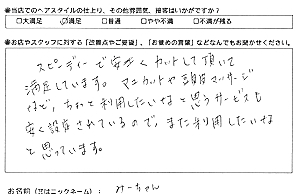 ●当店でのヘアスタイルの仕上り、その他雰囲気、接客はいかがですか？
□大満足 ☑満足 □普通 □やや不満 □不満が残る
●お店やスタッフに対する「改善点やご要望」、「お褒めの言葉」などなんでもお聞かせください。
スピーディーで安くカットして頂いて
満足しています。マニカットや頭皮マッサージ
など、ちょっと利用したいなと思うサービスも
安く設定されているので、また利用したいな
と思っています。
お名前（又はニックネーム）： みーちゃん